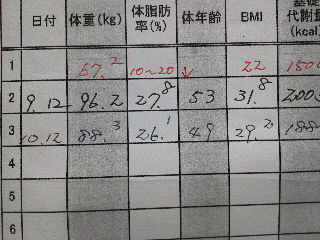 日付 体重(kg) 体脂肪率(%) 体年齢 BMI 代謝量(kcal)
1 67.2 10~20 ↓ 22
2 9.12 96.2 27.8 53 31.8
3 10.12 88.3 26.1 49 29.2
4
5
6